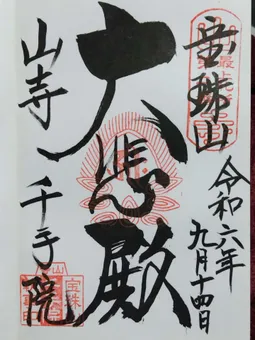 宝珠山
令和六年
九月十四日
大悲殿
山寺 千手院